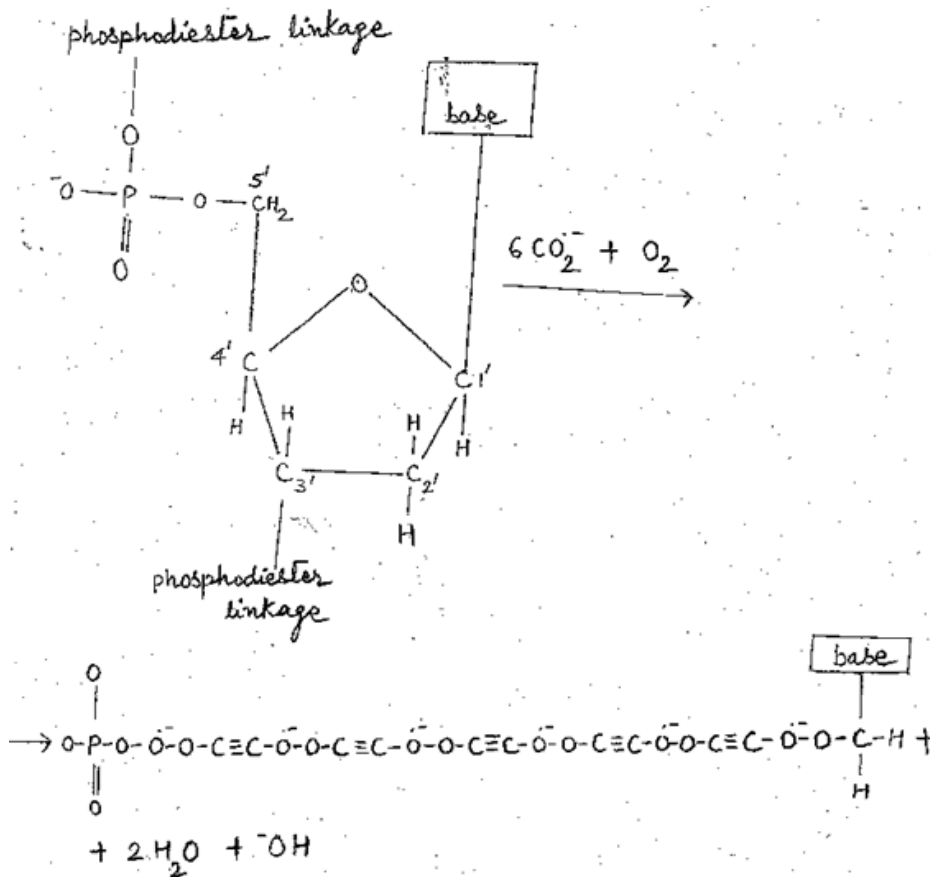 phosphodiester linkage
base
O
5'
⁻O—P—O—CH₂
O
6CO₂·⁻ + O₂ →
O
4' C
C1'
H H H H
C3' C2'
H
phosphodiester
linkage
base
O
→ O-P-O-Ȯ⁻-O-C≡C-Ȯ⁻-O-C≡C-Ȯ⁻-O-C≡C-Ȯ⁻-O-C≡C-Ȯ⁻-O-C≡C-Ȯ⁻-O-C-H +
O H
+ 2H₂O + ⁻OH